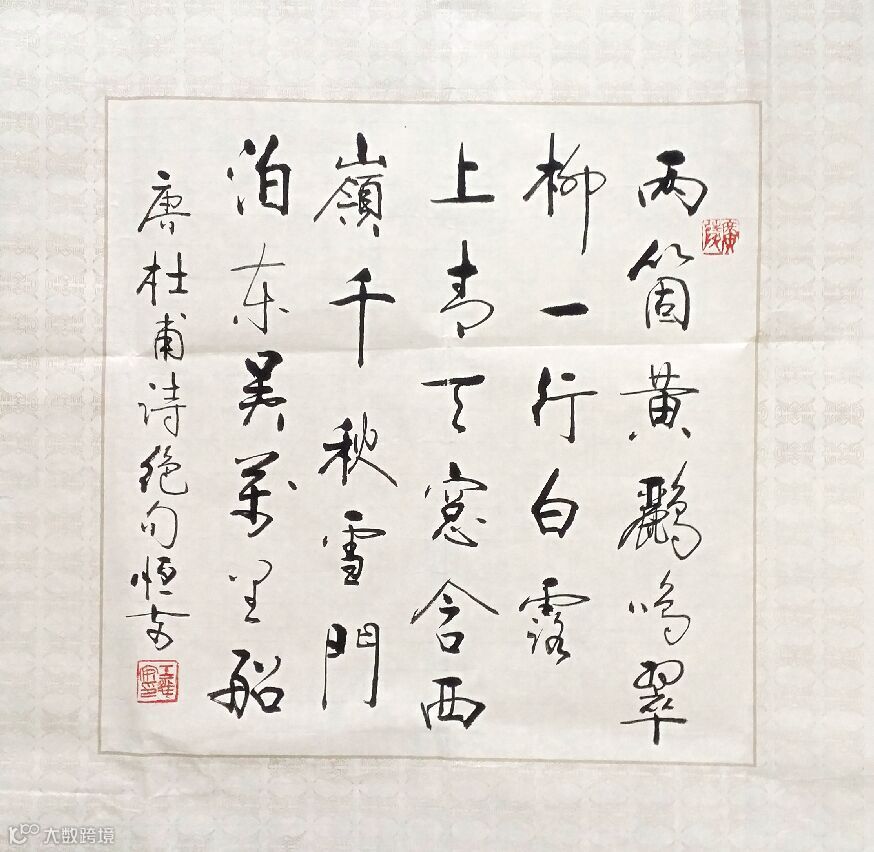 两箇黃鸝鳴翠
柳一行白露
上青天窓含西
嶺千秋雪門
泊东吴萬里船
唐杜甫诗絶句恆安
廣陵
大数跨境